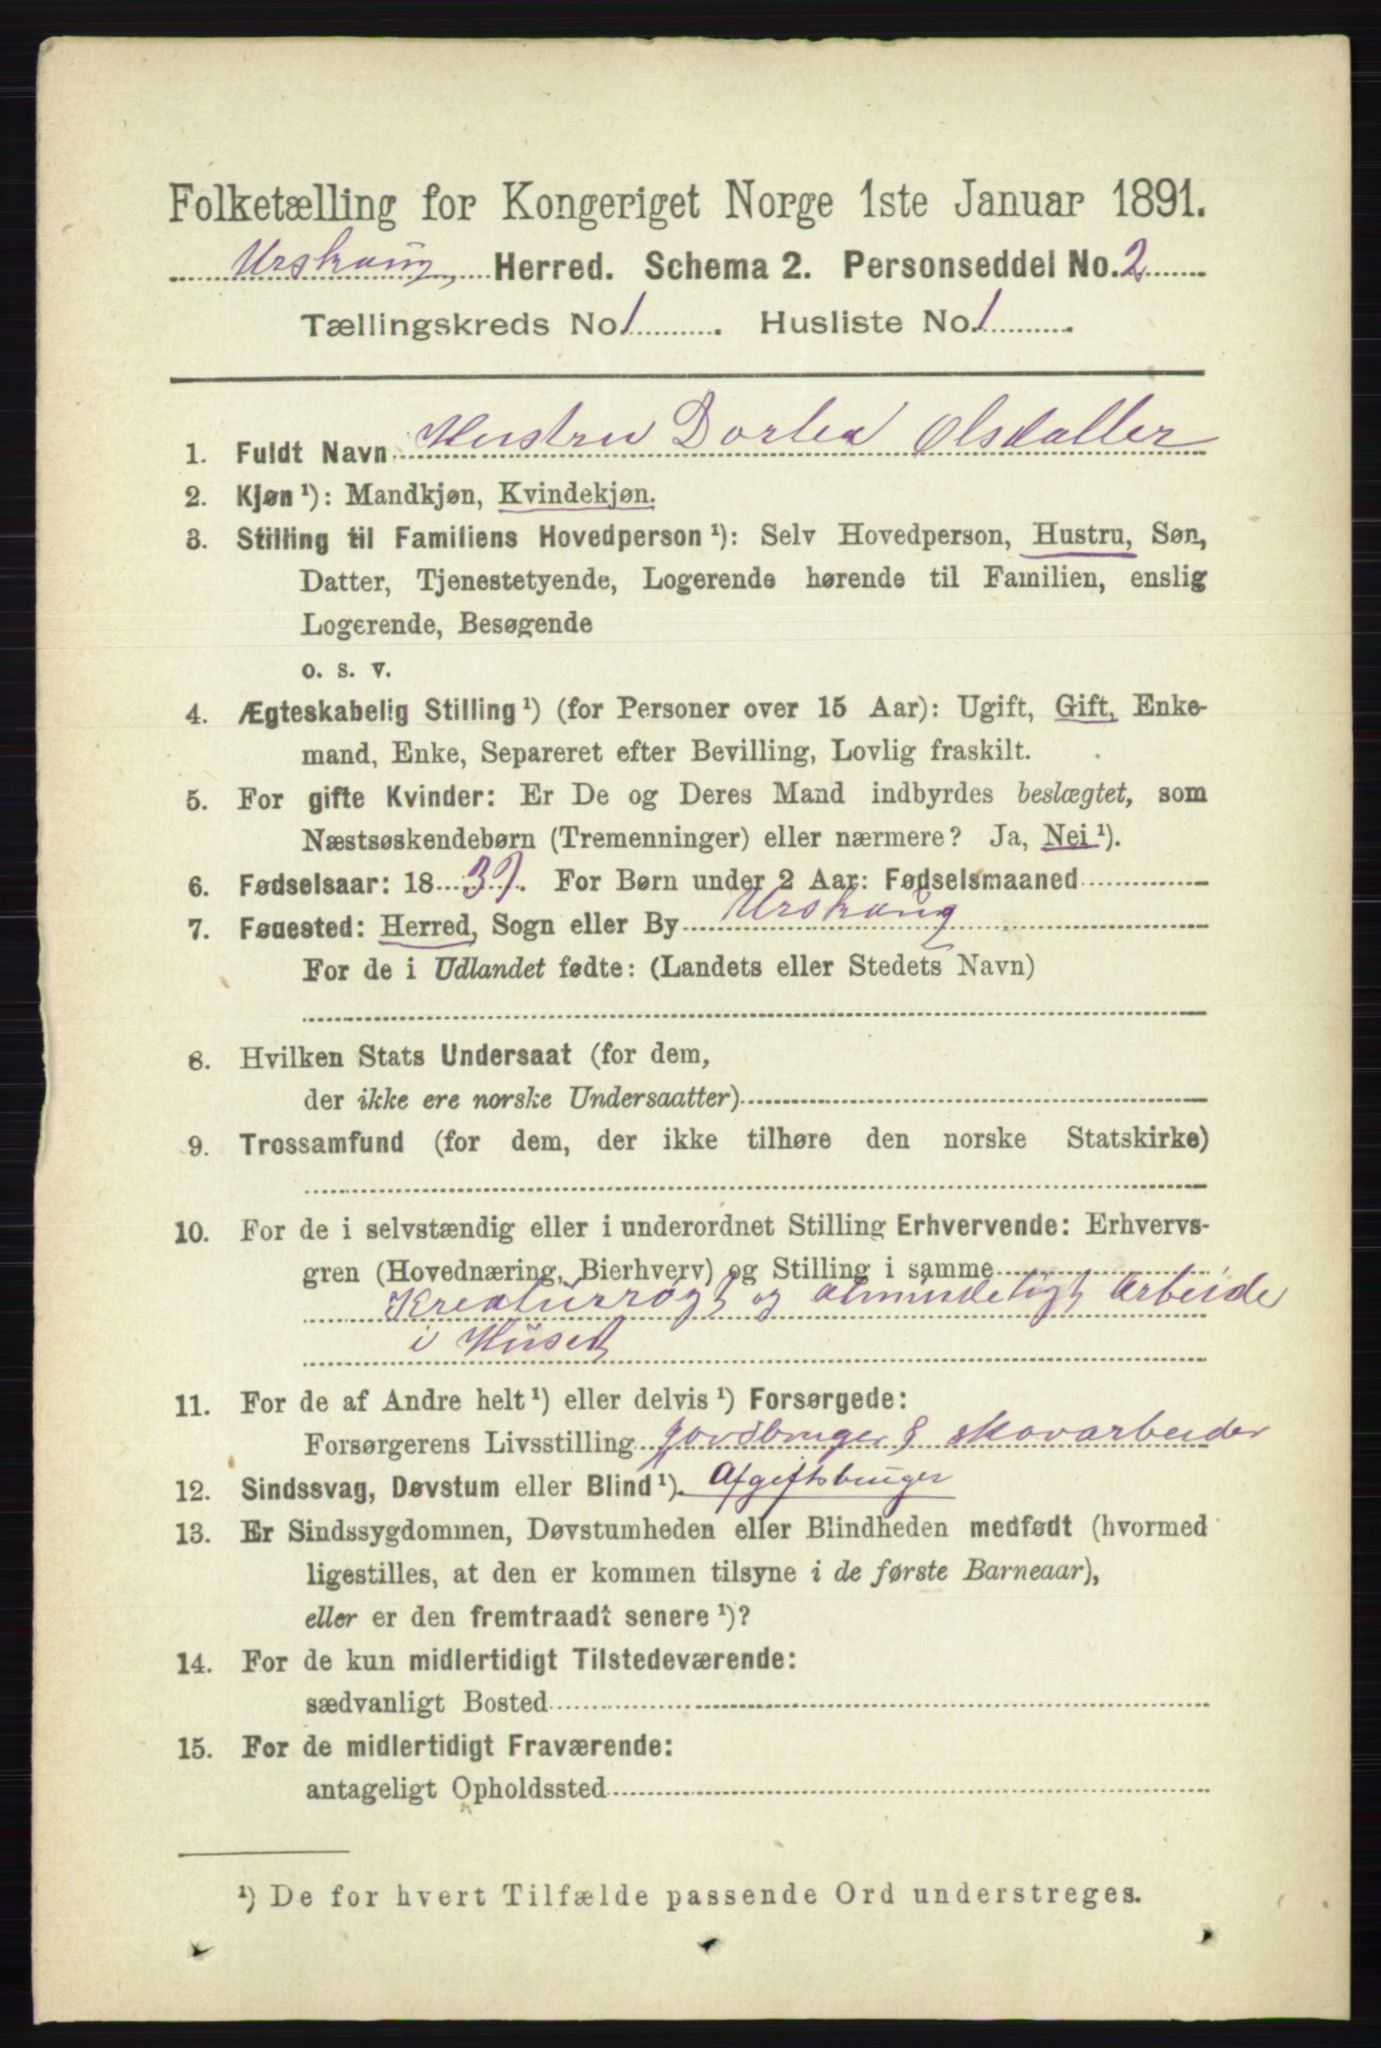 Folketælling for Kongeriget Norge 1ste Januar 1891.
Urskoug Herred. Schema 2. Personseddel No. 2
Tællingskreds No. 1. Husliste No. 1.
1. Fuldt Navn Hustru Dorlea Olsdatter
2. Kjøn ¹): Mandkjøn, Kvindekjøn.
3. Stilling til Familiens Hovedperson ¹): Selv Hovedperson, Hustru, Søn,
Datter, Tjenestetyende, Logerende hørende til Familien, enslig
Logerende, Besøgende
o. s. v.
4. Ægteskabelig Stilling ¹) (for Personer over 15 Aar): Ugift, Gift, Enke-
mand, Enke, Separeret efter Bevilling, Lovlig fraskilt.
5. For gifte Kvinder: Er De og Deres Mand indbyrdes beslægtet, som
Næstsøskendebørn (Tremenninger) eller nærmere? Ja, Nei ¹).
6. Fødselsaar: 1837. For Børn under 2 Aar: Fødselsmaaned
7. Fødested: Herred, Sogn eller By Urskoug
For de i Udlandet fødte: (Landets eller Stedets Navn)
8. Hvilken Stats Undersaat (for dem,
der ikke ere norske Undersaatter)
9. Trossamfund (for dem, der ikke tilhøre den norske Statskirke)
10. For de i selvstændig eller i underordnet Stilling Erhvervende: Erhvervs-
gren (Hovednæring, Bierhverv) og Stilling i samme
Kreaturrøgt og almindeligt Arbeide
i Huset
11. For de af Andre helt ¹) eller delvis ¹) Forsørgede:
Forsørgerens Livsstilling Jordbruger & skovarbeider
12. Sindssvag, Døvstum eller Blind ¹). Afgiftsbruger
13. Er Sindssygdommen, Døvstumheden eller Blindheden medfødt (hvormed
ligestilles, at den er kommen tilsyne i de første Barneaar),
eller er den fremtraadt senere ¹)?
14. For de kun midlertidigt Tilstedeværende:
sædvanligt Bosted
15. For de midlertidigt Fraværende:
antageligt Opholdssted
¹) De for hvert Tilfælde passende Ord understreges.